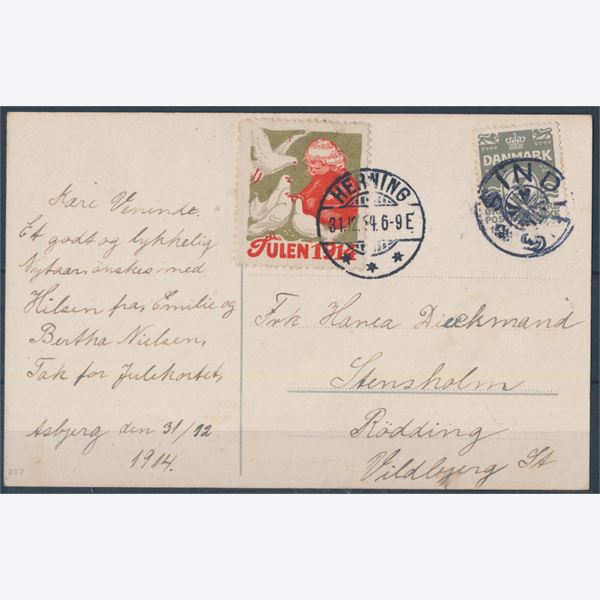 Kære Veninde.
Et godt og lykkelig
Nytaar, ønskes med
Hilsen fra, Emilie og
Bertha Nielsen.
Tak for Julekortet,
Asbjerg den 31/12
1914.
317
JULEN 1914
HERNING
31.12.14. 6-9 E
DANMARK
SIND
Frk Hanea Dieckmand
Stensholm
Rödding
Vildbjerg St